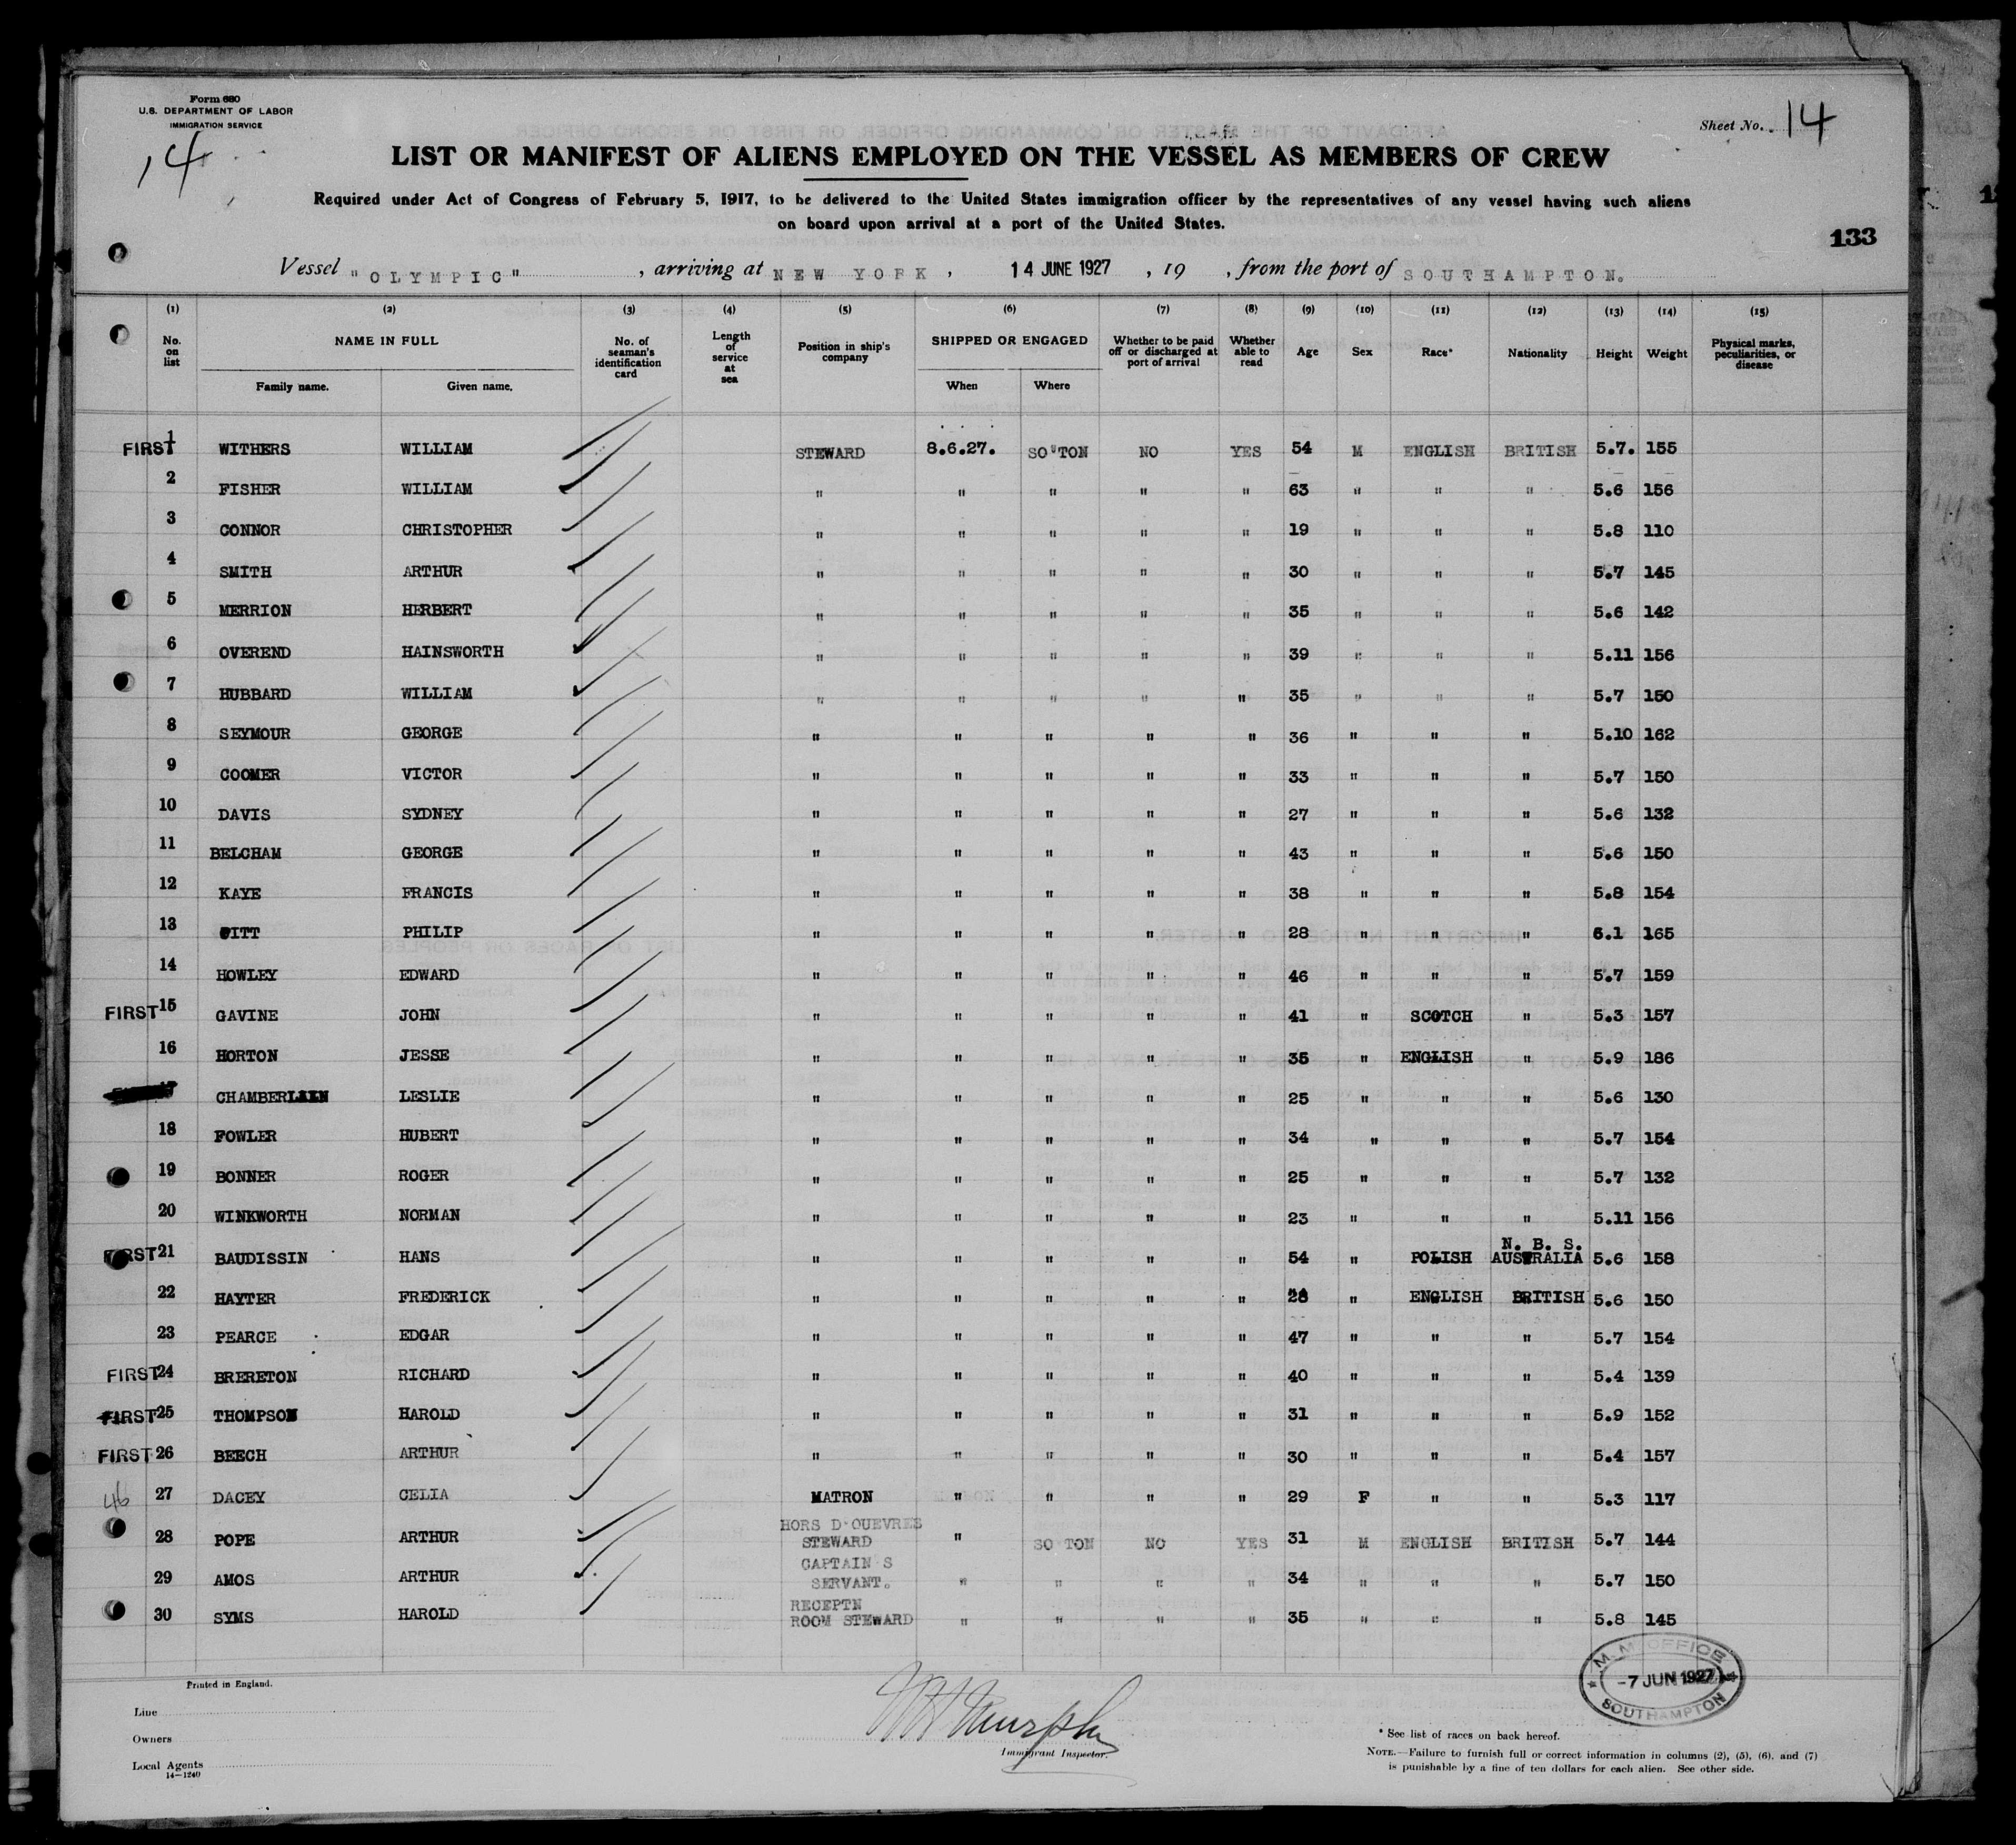 Form 680
U.S. DEPARTMENT OF LABOR
IMMIGRATION SERVICE
14
Sheet No. 14
LIST OR MANIFEST OF ALIENS EMPLOYED ON THE VESSEL AS MEMBERS OF CREW
Required under Act of Congress of February 5, 1917, to be delivered to the United States immigration officer by the representatives of any vessel having such aliens
on board upon arrival at a port of the United States.
133
Vessel "OLYMPIC", arriving at NEW YORK, 14 JUNE 1927, 19 , from the port of SOUTHAMPTON.
(1) (2) (3) (4) (5) (6) (7) (8) (9) (10) (11) (12) (13) (14) (15)
No. on list NAME IN FULL No. of seaman's identification card Length of service at sea Position in ship's company SHIPPED OR ENGAGED Whether to be paid off or discharged at port of arrival Whether able to read Age Sex Race* Nationality Height Weight Physical marks, peculiarities, or disease
Family name. Given name. When Where
FIRST 1 WITHERS WILLIAM STEWARD 8.6.27. SO'TON NO YES 54 M ENGLISH BRITISH 5.7. 155
2 FISHER WILLIAM " " " " " 63 " " " 5.6 156
3 CONNOR CHRISTOPHER " " " " " 19 " " " 5.8 110
4 SMITH ARTHUR " " " " " 30 " " " 5.7 145
5 MERRION HERBERT " " " " " 35 " " " 5.6 142
6 OVEREND HAINSWORTH " " " " " 39 " " " 5.11 156
7 HUBBARD WILLIAM " " " " " 35 " " " 5.7 150
8 SEYMOUR GEORGE " " " " " 36 " " " 5.10 162
9 COOMER VICTOR " " " " " 33 " " " 5.7 150
10 DAVIS SYDNEY " " " " " 27 " " " 5.6 132
11 BELCHAM GEORGE " " " " " 43 " " " 5.6 150
12 KAYE FRANCIS " " " " " 38 " " " 5.8 154
13 PITT PHILIP " " " " " 28 " " " 6.1 165
14 HOWLEY EDWARD " " " " " 46 " " " 5.7 159
FIRST 15 GAVINE JOHN " " " " " 41 " SCOTCH " 5.3 157
16 HORTON JESSE " " " " " 35 " ENGLISH " 5.9 186
17 CHAMBERLAIN LESLIE " " " " " 25 " " " 5.6 130
18 FOWLER HUBERT " " " " " 34 " " " 5.7 154
19 BONNER ROGER " " " " " 25 " " " 5.7 132
20 WINKWORTH NORMAN " " " " " 23 " " " 5.11 156
N. B. S.
FIRST 21 BAUDISSIN HANS " " " " " 54 " POLISH AUSTRALIA 5.6 158
22 HAYTER FREDERICK " " " " " 28 " ENGLISH BRITISH 5.6 150
23 PEARCE EDGAR " " " " " 47 " " " 5.7 154
FIRST 24 BRERETON RICHARD " " " " " 40 " " " 5.4 139
FIRST 25 THOMPSON HAROLD " " " " " 31 " " " 5.9 152
FIRST 26 BEECH ARTHUR " " " " " 30 " " " 5.4 157
46 27 DACEY CELIA MATRON " " " " 29 F " " 5.3 117
28 POPE ARTHUR HORS D'OUEVRES STEWARD " SO TON NO YES 31 M ENGLISH BRITISH 5.7 144
29 AMOS ARTHUR CAPTAIN S SERVANT. " " " " 34 " " " 5.7 150
30 SYMS HAROLD RECEPTN ROOM STEWARD " " " " 35 " " " 5.8 145
M. M. OFFICE
-7 JUN 1927
SOUTHAMPTON
Printed in England.
Line
Owners
Local Agents
14-1240
W H Murphy
Immigrant Inspector.
* See list of races on back hereof.
NOTE.—Failure to furnish full or correct information in columns (2), (5), (6), and (7)
is punishable by a fine of ten dollars for each alien. See other side.